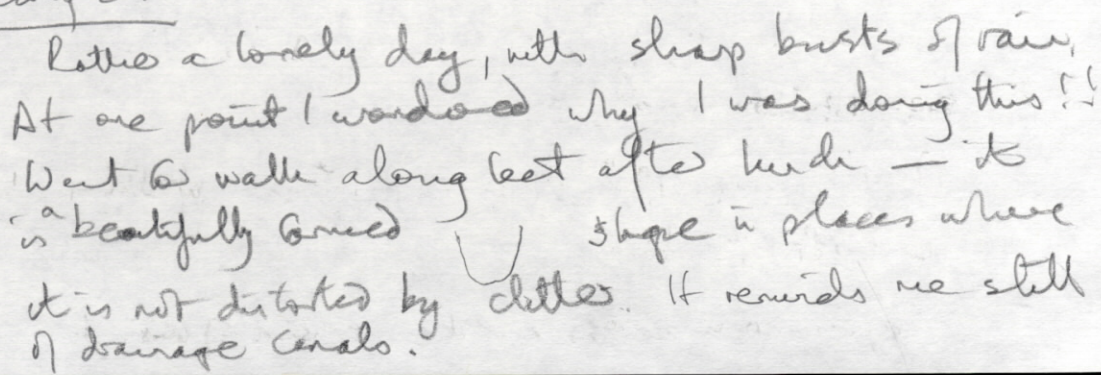 Rather a lonely day, with sharp bursts of rain.
At one point I wondered why I was doing this!!
Went to walk along leat after lunch — it
is a beautifully U shape in places where
it is not distorted by clitter. It reminds me still
of drainage canals.